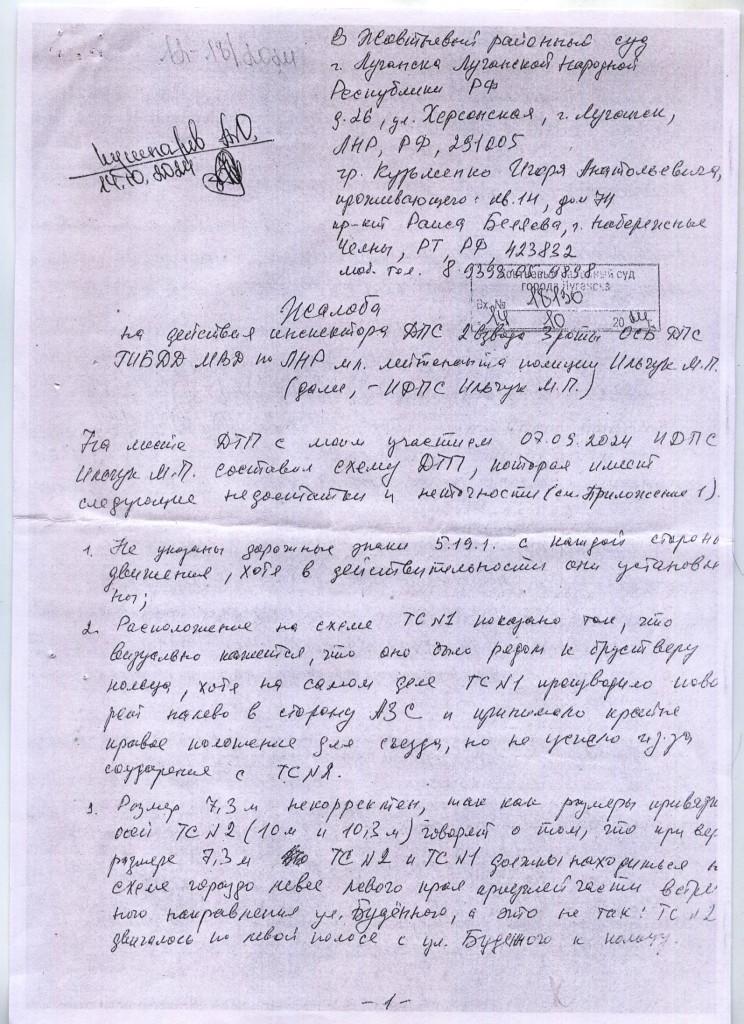 12-17/2024
Кушнарев А.О.
14.10.2024
В Жовтневый районный суд
г. Луганска Луганской Народной
Республики РФ
д. 26, ул. Херсонская, г. Луганск,
ЛНР, РФ, 291005
гр. Кузьменко Игоря Анатольевича,
проживающего: кв. 14, дом 74
пр-кт Раиса Беляева, г. Набережные
Челны, РТ, РФ, 423832
моб. тел.
Жовтневый районный суд
города Луганска
Вх. № 18136
14 10 2024
Жалоба
на действия инспектора ДПС 2 взвода 3 роты ОСБ ДПС
ГИБДД МВД по ЛНР мл. лейтенанта полиции Ильчук М.П.
(дали, - ИДПС Ильчук М.П.)
На места ДТП с моим участием 07.09.2024 ИДПС
Ильчук М.П. составил схему ДТП, которая имеет
следующие недостатки и неточности (см. Приложение 1).
1. Не указаны дорожные знаки 5.19.1. с каждой стороны
движения, хотя в действительности они установле
ны;
2. Расположение на схеме ТС №1 показано так, что
визуально кажется, что оно было рядом к брустверу
кольца, хотя на самом деле ТС №1 производило пово
рот налево в сторону АЗС и принимало крайне
правое положение для съезда, но не успело из-за
соударения с ТС №2.
3. Размер 7,3 м некорректен, так как размеры привязки
осей ТС №2 (10 м и 10,3 м) говорят о том, что при вер
размере 7,3 м ТС №2 и ТС №1 должны находиться н
схеме гораздо левее левого края проезжей части встре
ного направления ул. Будённого, а это не так: ТС №2
двигалось по левой полосе с ул. Будённого к кольцу.
- 1 -